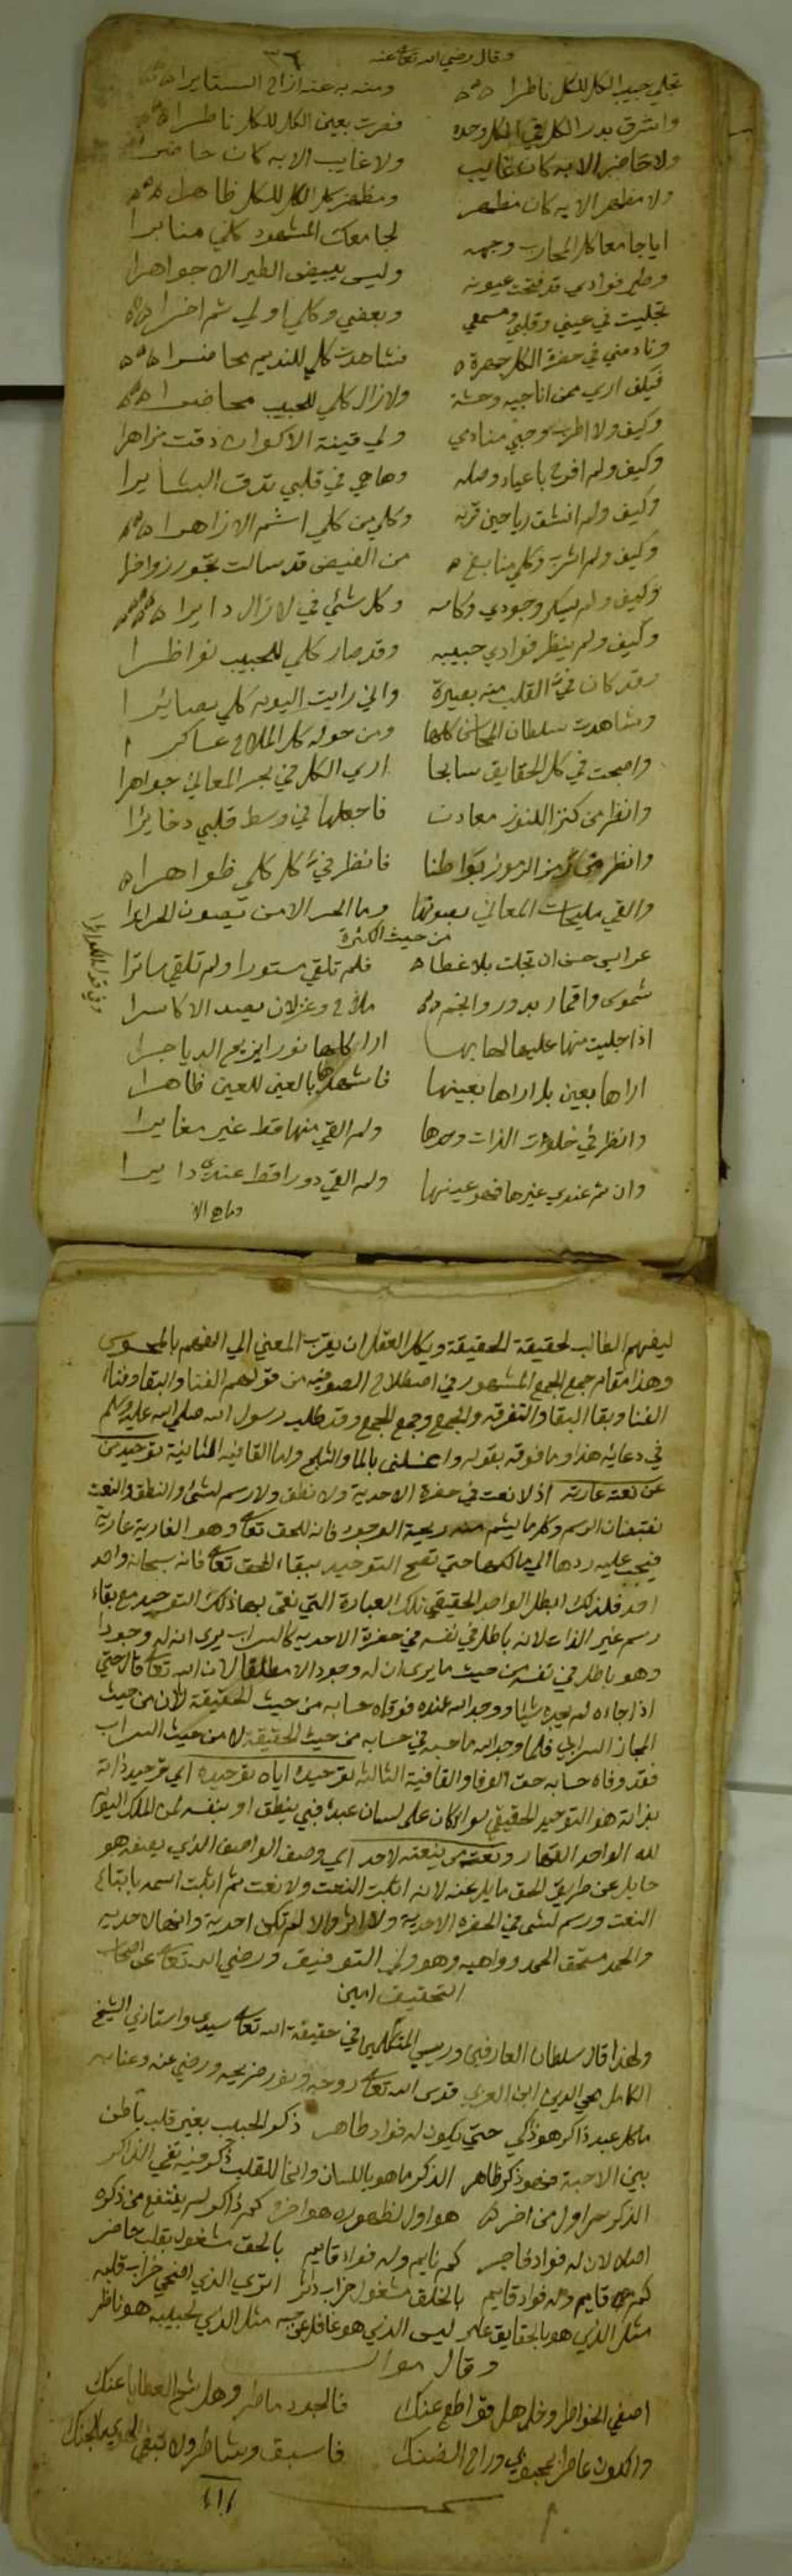 وقال رضي الله تعالى عنه
٣٦
تجلى حبيب الكل للكل ناظرا ومنه به عنه ازاح الستايرا
واشرق بدر الكل في الكل وحده فقرت بعين الكل للكل ناظرا
ولا حاضر الا به كان غايب ولا غايب الا به كان حاضرا
ولا مظهر الا به كان مظهر ومظهر كل الكل للكل ظاهرا
ايا جامعا كل المحارب وجهه لجامعك المشهود كلي منابرا
وطير فوادي قد فتحت عيونه وليس يبيض الطير الا جواهرا
تجليت في عيني وقلبي ومسمعي وبعضي وكلي اولي ثم اخرا
ونادمني في حضرة الكل جهرة فشاهدت كلي للنديم محاضرا
فكيف ارى ممن اناجيه وحشة ولا زال كلي للحبيب محاضرا
وكيف ولا اطرب وحبي منادمي ولي قينة الاكوان دقت مزاهرا
وكيف ولم افرح باعياد وصله وها هي في قلبي تدق البشايرا
وكيف ولم انشق رياحين قربه وكلي من كلي اشم الازاهرا
وكيف ولم اشرب وكلي منابع من الفيض قد سالت بحور زواخرا
وكيف ولم يسكر وجودي وكاسه وكل شئي في لا زال دايرا
وكيف ولم ينظر فوادي حبيبه وقد صار كلي للحبيب نواظرا
وقد كان في القلب منه بصيرة واني رايت اليوم كلي بصائرا
وشاهدت سلطان المحاسن كلها ومن حوله كل الملاح عساكرا
واصبحت في كل الحقايق سابحا ارى الكل في بحر المعاني جواهرا
وانظر من كنز الكنوز معادن فاجعلها في وسط قلبي دخايرا
وانظر من رمز الرموز بواطنا فانظر في كل كلي ظواهرا
والقي مليحات المعاني بصونها وما الحر الا من يصون الحرايرا
من حيث الكثرة
عرايس حسن ان تجلت بلا غطاء فلم تلقي مستورا ولم تلقي ساترا
شموس واقمار بدور وانجم ملاح وغزلان يصيد الاكاسرا
اذا جليت منها عليها لها بها اراكلها نورا يزيح الدياجرا
اراها بعين بل اراها بعينها فاشهدها بالعين للعين ظاهرا
وانظر في خلوات الذات وحدها ولم القي منها قط غير مغايرا
وان ثم عندي غيرها فهو عينها ولم القي دورا قط عندي دايرا
ليفهم الطالب لحقيقة الحقيقة ويكل العقل ان يقرب المعني الي الفهم بالمحسوس
وهذا مقام جمع الجمع المشهور في اصطلاح الصوفيه من قولهم الفنا والبقا وفناء
الفنا وبقا البقا والتفرقه والجمع وجمع الجمع وقد طلب رسول الله صلي الله عليه وسلم
في دعائه هذا وما فوقه بقوله واغسلني بالما والثلج واما القافيه الثانيه توحيد من
عن نعته عارية اذ لا نعت في حضرة الاحدية ولا نطق ولا رسم لشئ والنطق والنعت
يقتضيان الرسم وكلما يشم منه ريحة الوجود فانه للحق تعالى وهو العارية عارية
فيجب عليه ردها الي مالكها حتي تصح التوحيد ببقاء الحق تعالى فانه سبحانه واحد
احد فلذلك ابطل الواحد الحقيقي تلك العبارة التي نفى بها ذلك التوحيد مع بقاء
رسم غير الذات لانه باطل في نفسه في حضرة الاحديه كالسراب يرى ان له وجودا
وهو باطل في نفسه من حيث ما يرى ان له وجود الا مطلقا لان الله تعالى قال حتي
اذا جاءه لم يجده شيئا ووجد الله عنده فوفاه حسابه من حيث الحقيقة لا من حيث
المجاز السرابي فلما وجد الله ما حسبه في حسابه من حيث الحقيقة لا من حيث السراب
فقد وفاه حسابه حق الوفا والقافية الثالثه توحيده اياه توحيده اي توحيد ذاته
بذاته هو التوحيد الحقيقي سوا كان على لسان عبده فبي ينطق او بنفسه لمن الملك اليوم
لله الواحد القهار ونعت من ينعته لاحد اي وصف الواصف الذي يصفه هو
حايل عن طريق الحق مايل عنه لانه اثبت النعت ولا نعت ثم اثبت اسمه بابقاء
النعت ورسم لشي في الحضرة الاحدية ولا اثر والا لم تكن احدية
والحمد مستحق الحمد وواهبه وهو ولي التوفيق ورضي الله تعالى عن اصحاب
التحقيق امين
ولهذا قال سلطان العارفين وريس المتكلمين في حقيقة الله تعالى سيدي واستاذي الشيخ
الكامل محي الدين ابن العربي قدس الله تعالى روحه ونور ضريحه ورضي عنه وعنا به
ما كل عبد ذاكر هو ذاكر حتى يكون له فواد طاهر ذكر الحبيب بغير قلب باطن
بين الاحبة فهو ذكر ظاهر الذكر ما هو باللسان وانما للقلب ذكر فيه نفي الذاكر
الذكر سر اول من اخر هو اول لظهوره هو اخر كم ذاكر لم ينتفع من ذكره
اصلا لان له فواد فاجر كم نايم وله فواد قايم بالحق مشغول بقلب حاضر
كم قايم وله فواد قايم بالخلق مشغول خراب داثر اترى الذي اضحي خراب قلبه
مثل الذي هو بالحقايق عامر ليس الذي هو غافل عن حبه مثل الذي لحبيبه هو ناظر
وقال مواليا
اصفي الخواطر وخلي هل قواطع عنك فالجود ماطر وهل شح العطايا عنك
والكون عاطر بمحبوبي وراح الضنك فاسبق وشاطر ولا تبقي